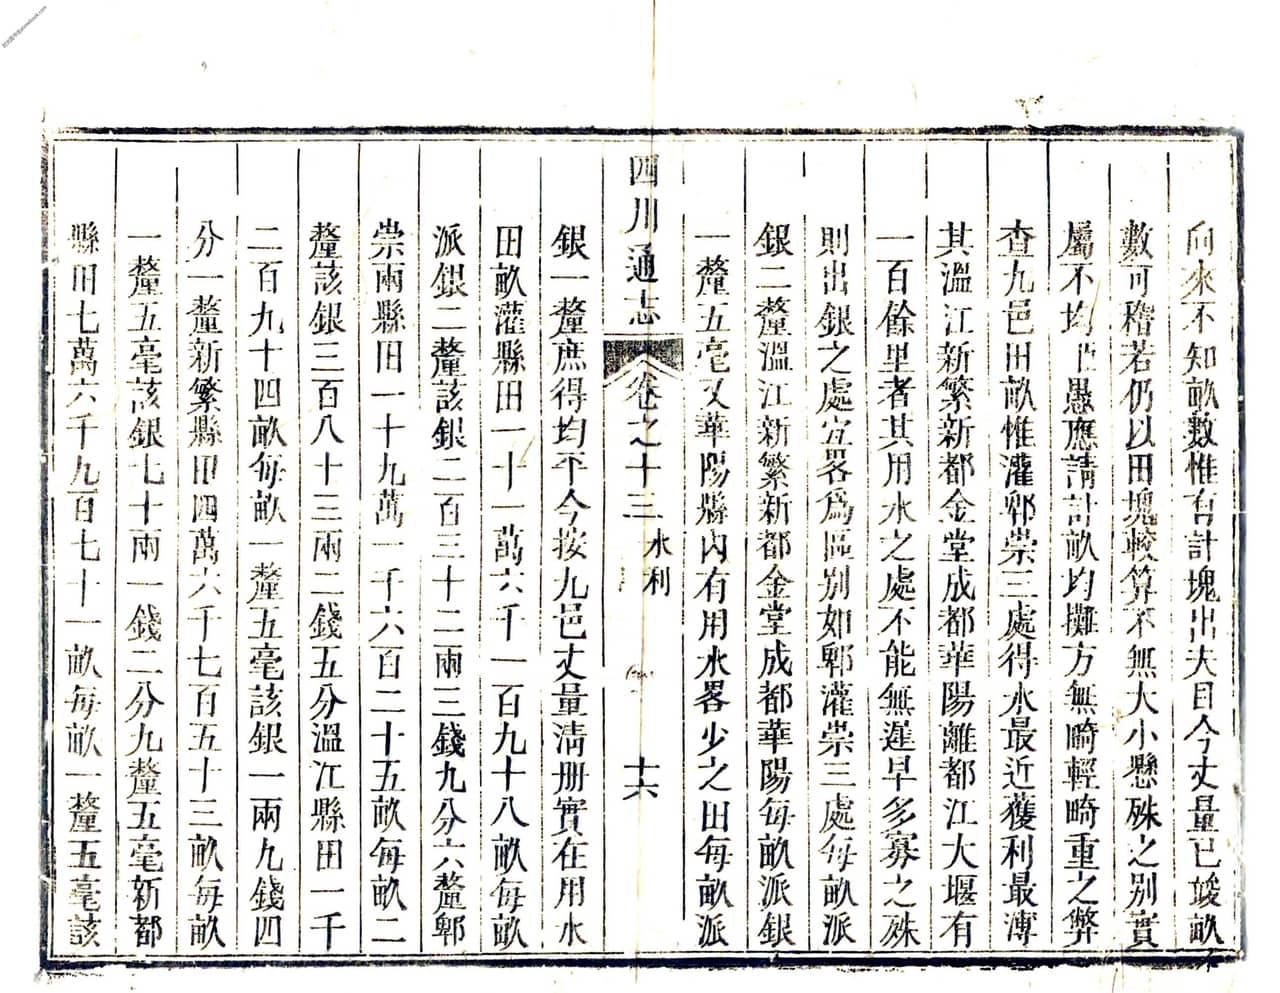 向來不知畝數惟有計塊出夫目今丈量已竣畝
數可稽若仍以田塊較算不無大小懸殊之別實
屬不均愚應請計畝均攤方無畸輕畸重之弊
查九邑田畝惟灌郫崇三處得水最近獲利最溥
其溫江新繁新都金堂成都華陽離都江大堰有
一百餘里者其用水之處不能無遲早多寡之殊
則出銀之處宜畧爲區別如郫灌崇三處每畝派
銀二釐溫江新繁新都金堂成都華陽每畝派銀
一釐五毫又華陽縣內有用水畧少之田每畝派
四川通志 卷之十三 水利 十六
銀一釐庶得均平今按九邑丈量淸册實在用水
田畝灌縣田一十一萬六千一百九十八畝每畝
派銀二釐該銀二百三十二兩三錢九分六釐郫
崇兩縣田一十九萬一千六百二十五畝每畝二
釐該銀三百八十三兩二錢五分溫江縣田一千
二百九十四畝每畝一釐五毫該銀一兩九錢四
分一釐新繁縣田四萬六千七百五十三畝每畝
一釐五毫該銀七十兩一錢二分九釐五毫新都
縣田七萬六千九百七十一畝每畝一釐五毫該